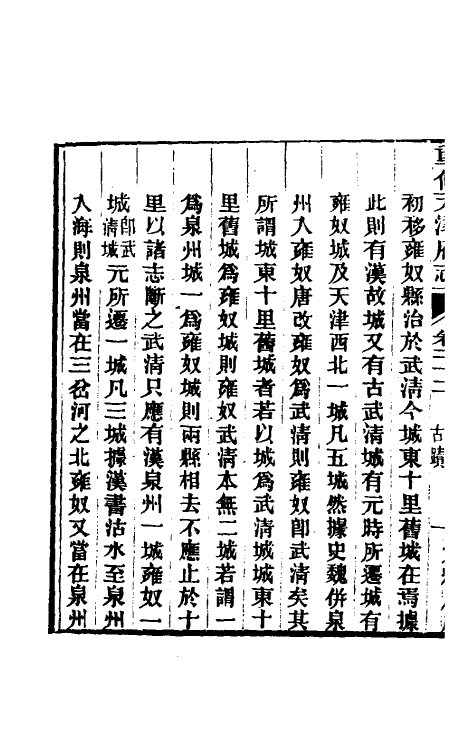 重修天津府志 卷二十二 古蹟
初移雍奴縣治於武清今城東十里舊城在焉據
此則有漢故城又有古武清城有元時所遷城有
雍奴城及天津西北一城凡五城然據史魏併泉
州入雍奴唐改雍奴爲武清則雍奴卽武清矣其
所謂城東十里舊城者若以城爲武清城城東十
里舊城爲雍奴城則雍奴武清本無二城若謂一
爲泉州城一爲雍奴城則兩縣相去不應止於十
里以諸志斷之武清只應有漢泉州一城雍奴一
城卽武清城元所遷一城凡三城據漢書沽水至泉州
入海則泉州當在三岔河之北雍奴又當在泉州